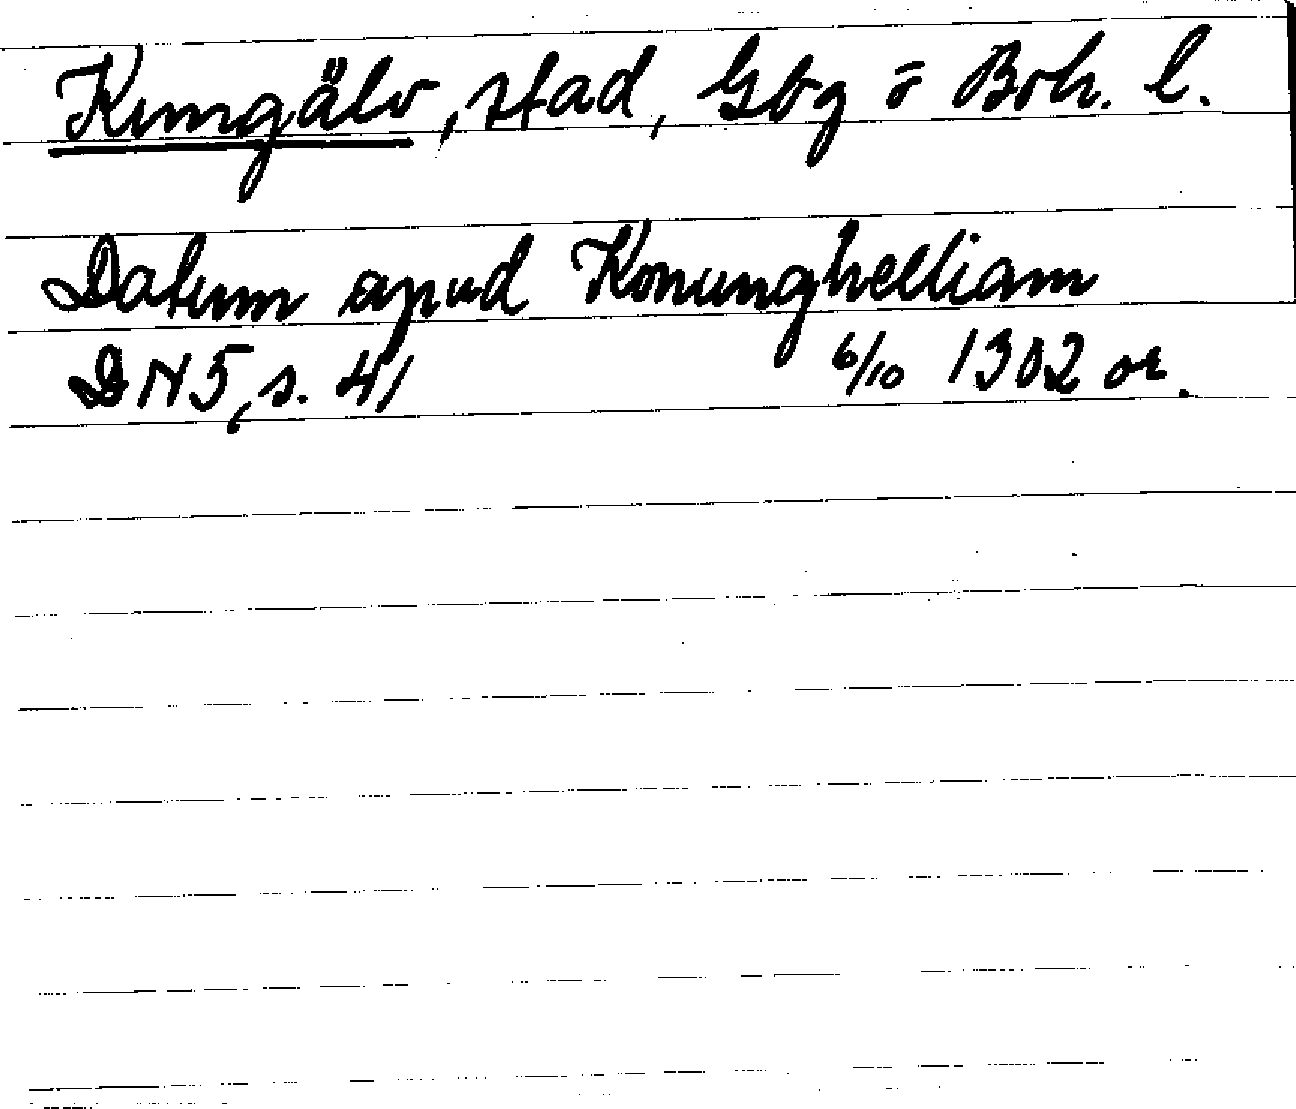 Kungälv, stad, Gbg o Boh. l.
Datum apud Konunghelliam
DN 5, s. 41 6/10 1302 or.